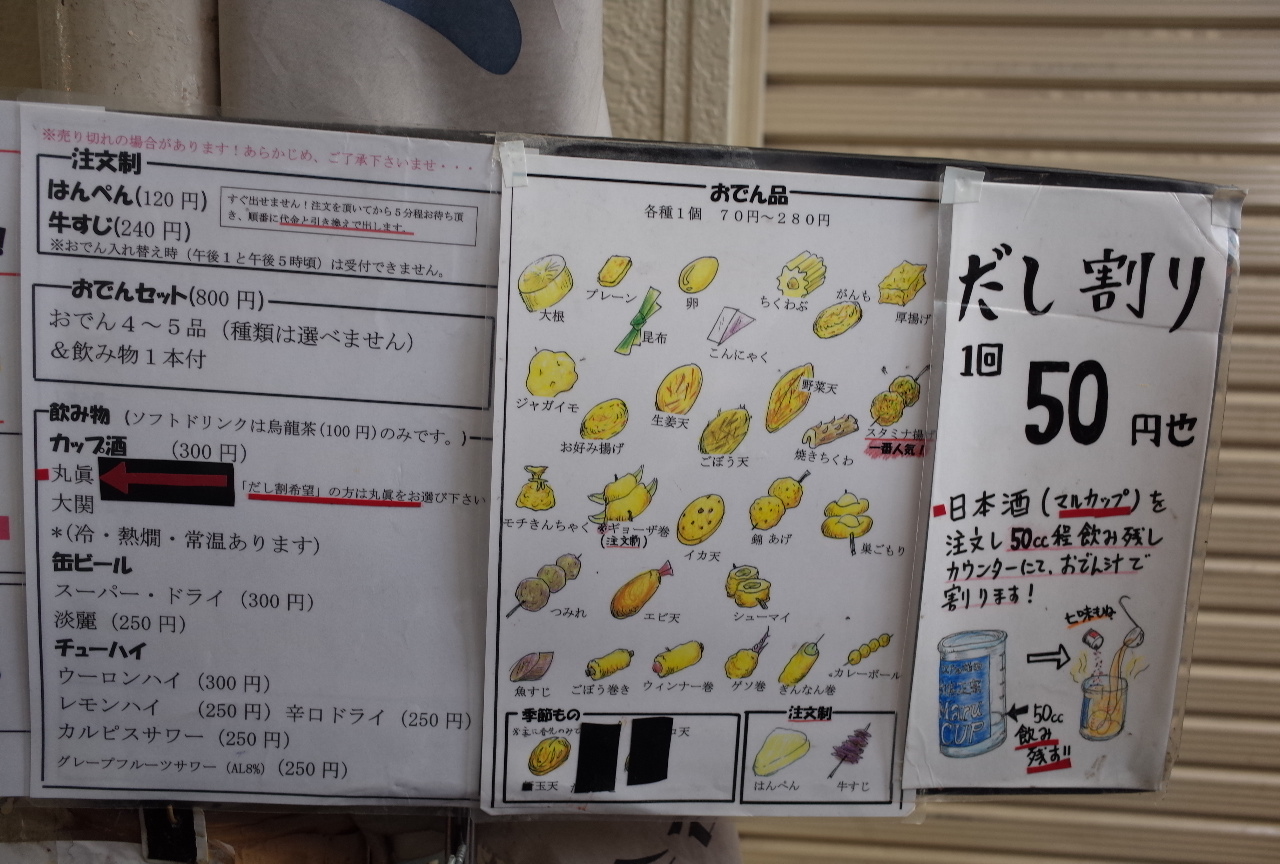 ※売り切れの場合があります！あらかじめ、ご了承下さいませ・・・
注文制
はんぺん(120 円)
すぐ出せません！注文を頂いてから５分程お待ち頂
き、順番に代金と引き換えで出します。
牛すじ(240 円)
※おでん入れ替え時（午後１と午後５時頃）は受付できません。
おでんセット(800 円)
おでん４～５品（種類は選べません）
＆飲み物１本付
飲み物（ソフトドリンクは烏龍茶(100 円)のみです。）
カップ酒　（300 円）
丸眞
「だし割希望」の方は丸眞をお選び下さい
大関
＊(冷・熱燗・常温あります)
缶ビール
スーパー・ドライ（300 円）
淡麗（250 円）
チューハイ
ウーロンハイ（300 円）
レモンハイ　（250 円）辛口ドライ（250 円）
カルピスサワー（250 円）
グレープフルーツサワー（AL8%）（250 円）
おでん品
各種１個　７０円～２８０円
大根
プレーン
卵
ちくわぶ
がんも
厚揚げ
昆布
こんにゃく
ジャガイモ
お好み揚げ
生姜天
ごぼう天
野菜天
焼きちくわ
スタミナ揚
一番人気！
モチきんちゃく
※ギョーザ巻
(注文前)
イカ天
錦あげ
巣ごもり
つみれ
エビ天
シューマイ
魚すじ
ごぼう巻き
ウィンナー巻
ゲソ巻
ぎんなん巻
カレーボール
季節もの
玉天
天
注文制
はんぺん
牛すじ
だし割り
1回
50
円也
日本酒(マルカップ)を
注文し50cc程飲み残し
カウンターにて、おでん汁で
割ります！
七味もね
MARU
CUP
50cc
飲み
残す!!